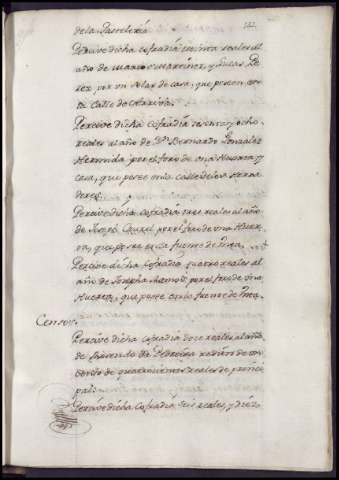 de la Pasteleria
Percive dicha cofradia treinta reales al
año de Marcos Martinez, y Lucas Pe
rez por un solar de casa, que poseen en
la Calle de Arriva.
Percive dicha cofradia treinta y ocho
reales al año de Dn Bernardo Gonzalez
Hermida por el foro de una Huerta, y
casa, que posee en la calle de los Herra
deros.
Percive dicha cofradia tres reales al año
de Joseph por el foro de una Huer
ta, que posee en la fuente de
Percive dicha cofradia quatro reales al
año de Josepha por el foro de una
Huerta, que posee en la fuente de
Censos.
Percive dicha cofradia doce reales al año
de de Pedreira redito de un
censo de quatrocientos reales de princi
pal.
Percive dicha cofradia seis reales, y diez